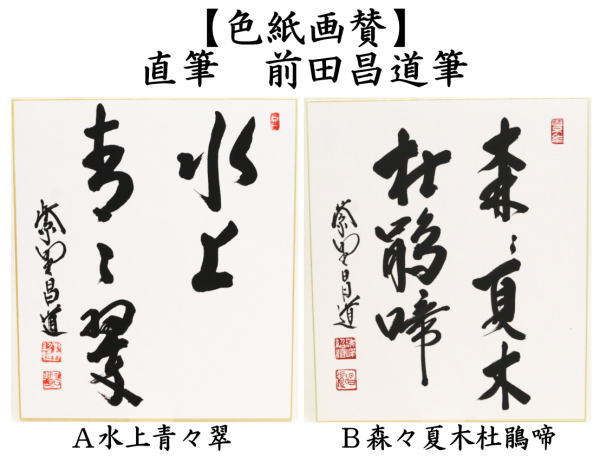 【色紙画賛】
直筆　前田昌道筆
水上
青々翠
紫野昌道
森々夏木
杜鵑啼
紫野昌道
A水上青々翠
B森々夏木杜鵑啼